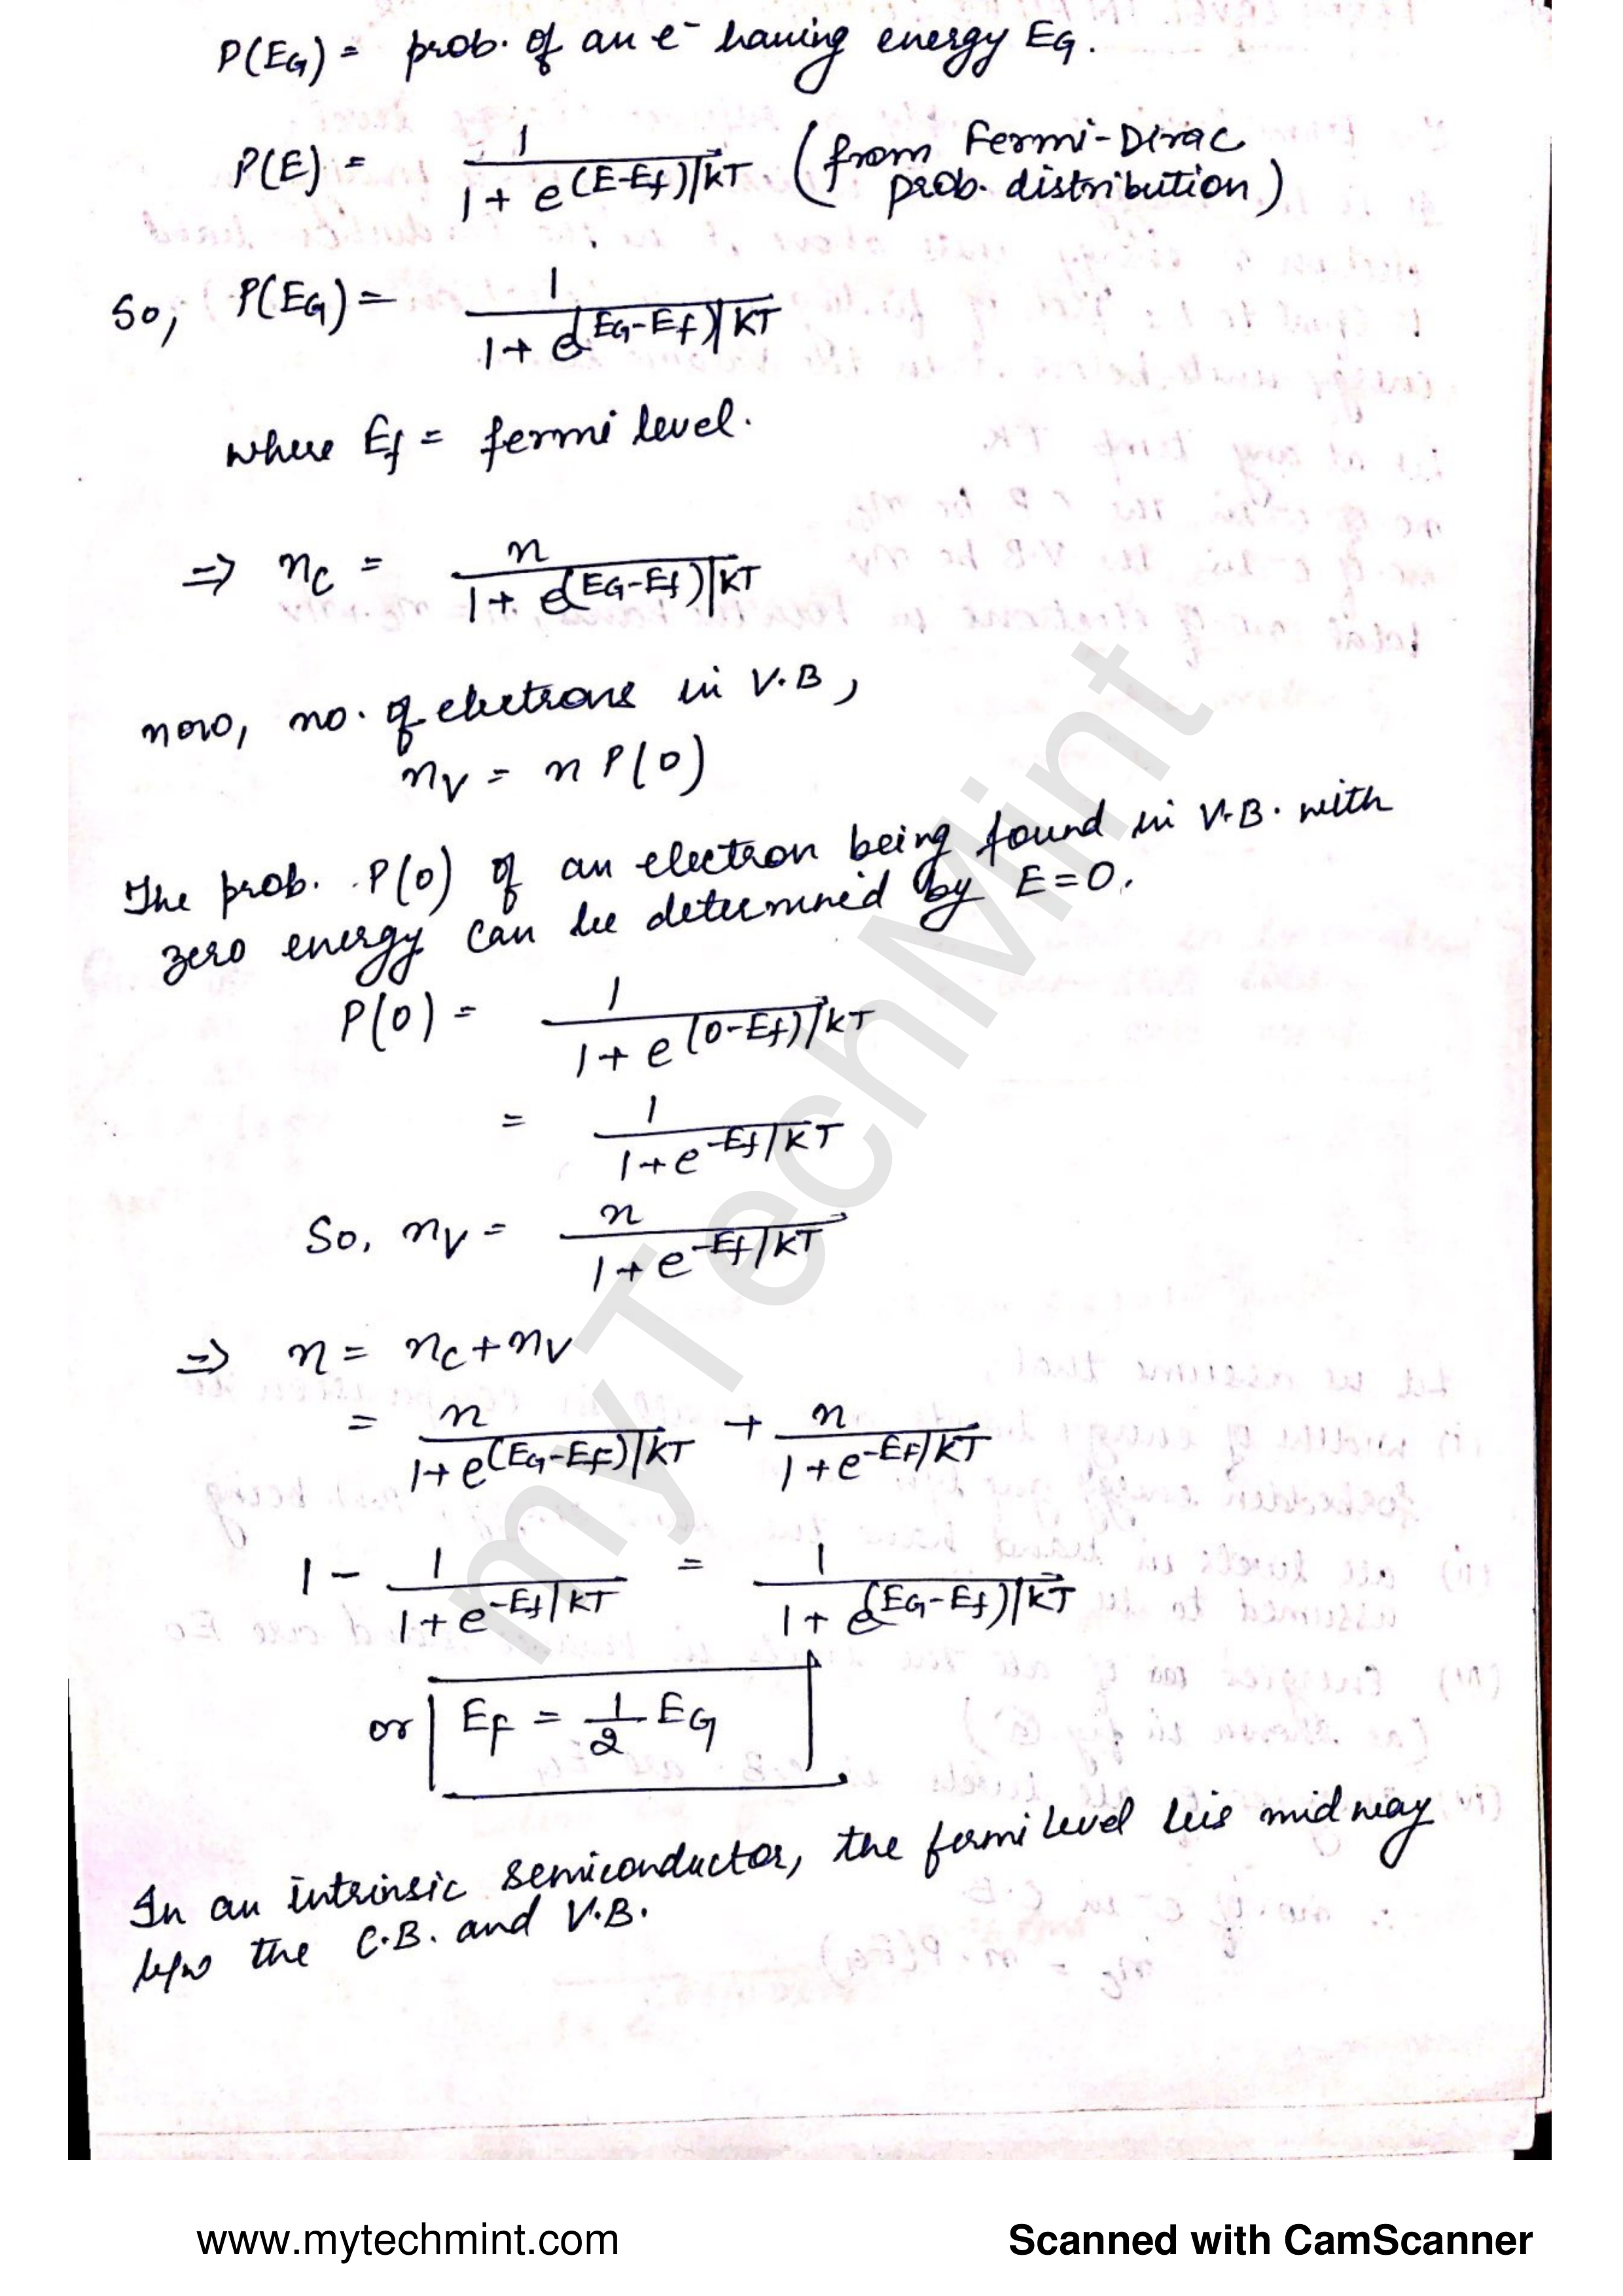 P(EG) = prob. of an e- having energy EG.
P(E) = 1 / 1 + e^(E-Ef)/kT (from Fermi-Dirac
prob. distribution)
So, P(EG) = 1 / 1 + e^(EG-Ef)/KT
where Ef = fermi level.
=> nc = n / 1 + e^(EG-Ef)/KT
now, no. of electrons in V.B,
nv = n P(0)
The prob. P(0) of an electron being found in V.B. with
zero energy can be determined by E=0.
P(0) = 1 / 1 + e^(0-Ef)/KT
= 1 / 1+e^-Ef/KT
So, nv = n / 1+e^-Ef/KT
=> n = nc+nv
= n / 1+ e^(EG-EF)/KT + n / 1+e^-EF/KT
1 - 1 / 1+e^-Ef/KT = 1 / 1+ e^(EG-Ef)/KT
or EF = 1/2 EG
In an intrinsic semiconductor, the fermi level lies midway
b/w the C.B. and V.B.
myTechMint
www.mytechmint.com
Scanned with CamScanner